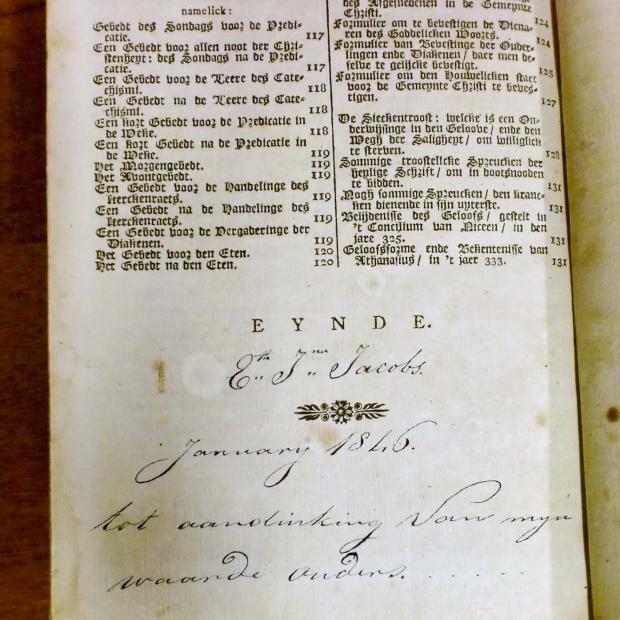 namelick:
Gebedt des Sondags voor de Predi-
catie. 117
Een Gebedt voor allen noot der Chri-
stenheyt: des Sondags na de Predi-
catie. 117
Een Gebedt voor de Leere des Cate-
chismi. 118
Een Gebedt na de Leere des Cate-
chismi. 118
Een kort Gebedt voor de Predicatie in
de Weke. 118
Een kort Gebedt na de Predicatie in
de Weke. 119
Het Morgengebedt. 119
Het Avontgebedt. 119
Een Gebedt voor de Handelinge des
Kerckenraets. 119
Een Gebedt na de Handelinge des
Kerckenraets. 119
Een Gebedt voor de Vergaderinge der
Diakenen. 119
Het Gebedt voor den Eten. 120
Het Gebedt na den Eten. 120
des Afgesneden in de Gemeynte
Christi. 124
Formulier om te bevestigen de Diena-
ren des Goddelicken Woorts. 124
Formulier van Bevestinge der Ouder-
lingen ende Diakenen / daer men de-
selve te gelijcke bevestigt. 125
Formulier om den Houwelicken staet
voor de Gemeynte Christi te beves-
tigen. 127
De Sieckentroost: welcke is een On-
derwijsinge in den Geloove / ende den
Wegh der Saligheyt / om willighlick
te sterven. 128
Sommige troostelicke Spreucken der
heylige Schrift / om in dootsnooden
te bidden. 131
Nogh sommige Spreucken / den kran-
ken dienende in sijn uyterste. 131
Belijdenisse des Geloofs / gestelt in
't Concilium van Niceen / in den
jare 325. 131
Geloofsforme ende Bekentenisse van
Athanasius / in 't jaer 333. 131
EYNDE.
Eth Jna Jacobs.
January 1846.
tot aandinking van myn
waarde ouders. . . . . .